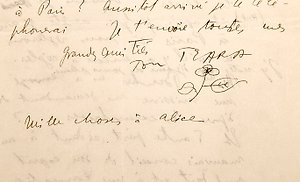 à Paris ? Aussitôt arrivé je te télé-
phonerai Je t'envoie toutes mes
Grandes amitiés
Ton TZARA
Mille choses à Alice